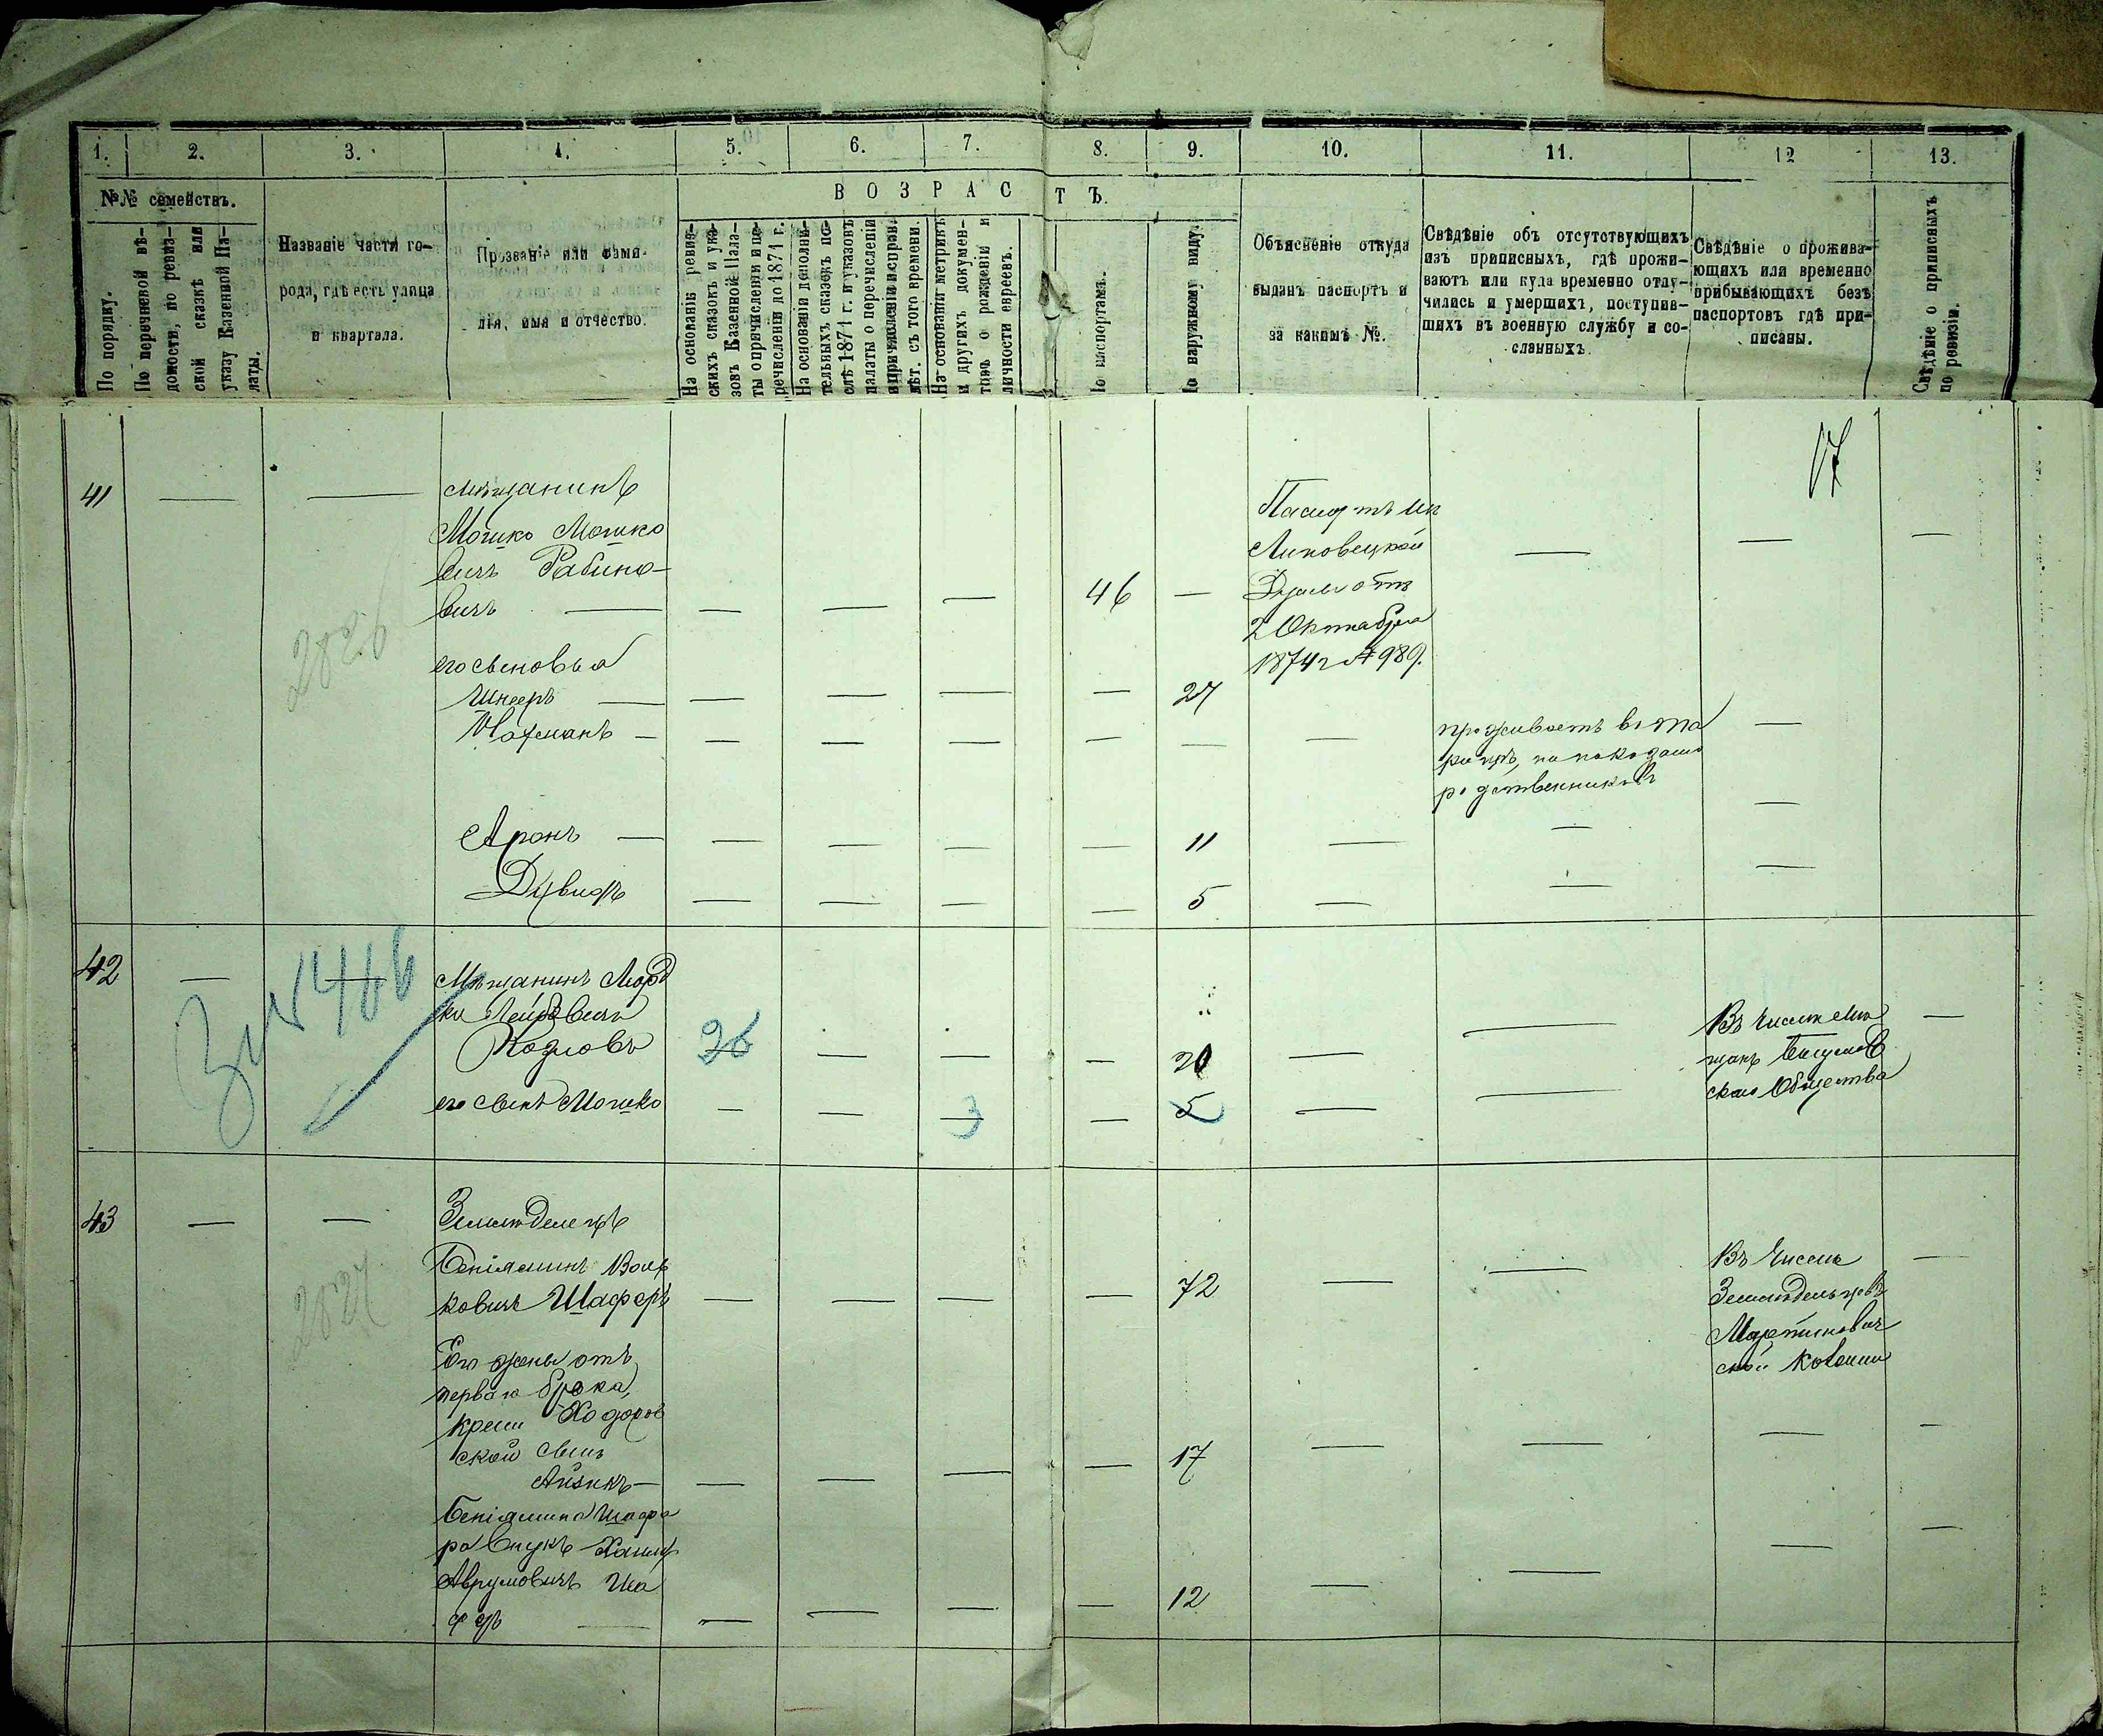 1. 2. 3. 4. 5. 6. 7. 8. 9. 10. 11. 12 13.
№№ семействъ.
По порядку.
По перечневой вѣ-
домости, по ревиз-
ской сказкѣ или
указу Казенной Па-
латы.
Названіе части го-
рода, гдѣ есть улица
и квартала.
Прозваніе или фами-
лія, имя и отчество.
ВОЗРАСТЪ.
На основаніи ревиз-
скихъ сказокъ и ука-
зовъ Казенной Пала-
ты о причисленіи и пе-
речисленіи до 1871 г.
На основаніи дополни-
тельныхъ сказокъ по-
слѣ 1871 г. и указовъ
палаты о перечисленіи
и причисленіи и справ.
лѣт. съ того времени.
На основаніи метрикъ
и другихъ докумен-
товъ о рожденіи и
личности евреевъ.
По паспортамъ.
По наружному виду.
Объясненіе откуда
выданъ паспортъ и
за какимъ №.
Свѣдѣніе объ отсутствующихъ
изъ приписныхъ, гдѣ прожи-
ваютъ или куда временно отлу-
чились и умершихъ, поступив-
шихъ въ военную службу и со-
сланныхъ.
Свѣдѣніе о прожива-
ющихъ или временно
прибывающихъ безъ
паспортовъ гдѣ при-
писаны.
Свѣдѣніе о приписныхъ
по ревизіи.
41
мѣщанинъ
Мошко Мошко
вичъ Рабино-
вичъ
46
Липовецкой
Думы отъ
2 Октября
1874 г № 989.
2826
его сыновья
Шнееръ
27
Нахманъ
проживаетъ въ та
родственниковъ
Аронъ
11
Дувидъ
5
42
№ 466
Мѣщанинъ Морд
ко Лейбовичъ
Козловъ
26
20
Въ числѣ мѣ
щанъ
скаго Общества
его сынъ Мошко
3
5
43
Земледелецъ
Беніяминъ Воль
ковичъ Шаферъ
72
Въ числе
Земледельцевъ
Мартинович
ской колоніи
2827
Его жены отъ
перваго брака,
Ходоров
ской сынъ
Айзикъ
17
Беніямина Шафе
ра внукъ Хаимъ
Аврумовичъ Ша
феръ
12